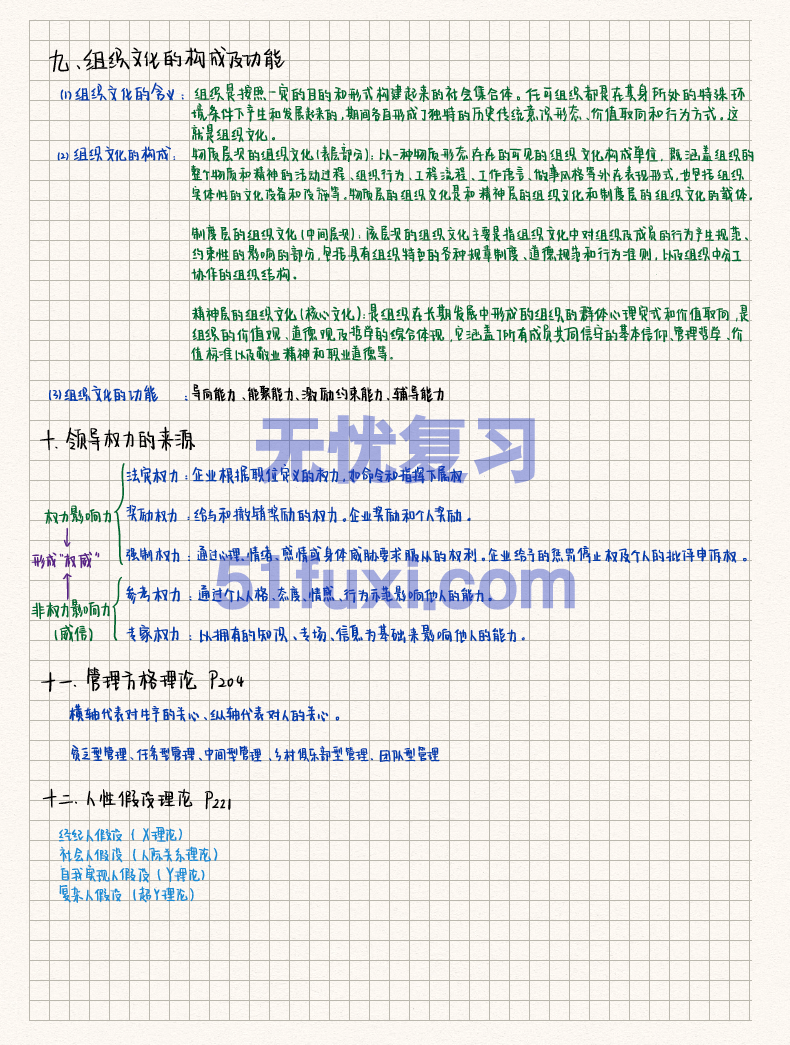 九、组织文化的构成及功能
(1) 组织文化的含义：组织是按照一定的目的和形式构建起来的社会集合体。任何组织都是在其身所处的特殊环
境条件下产生和发展起来的，期间各自形成了独特的历史传统意识形态、价值取向和行为方式。这
就是组织文化。
(2) 组织文化的构成：物质层次的组织文化(表层部分)：以一种物质形态存在的可见的组织文化构成单位，既涵盖组织的
整个物质和精神的活动过程、组织行为、工程流程、工作语言、做事风格等外在表现形式，也包括组织
实体性的文化设备和设施等。物质层的组织文化是和精神层的组织文化和制度层的组织文化的载体。
制度层的组织文化(中间层次)：该层次的组织文化主要是指组织文化中对组织及成员的行为产生规范、
约束性的影响的部分，包括具有组织特色的各种规章制度、道德规范和行为准则，以及组织中分工
协作的组织结构。
精神层的组织文化(核心文化)：是组织在长期发展中形成的组织的群体心理定式和价值取向，是
组织的价值观、道德观及哲学的综合体现，它涵盖了所有成员共同信守的基本信仰、管理哲学、价
值标准以及敬业精神和职业道德等。
(3) 组织文化的功能：导向能力、能聚能力、激励约束能力、辅导能力
十、领导权力的来源
法定权力：企业根据职位定义的权力，如命令和指挥下属权
权力影响力
奖励权力：给与和撤销奖励的权力。企业奖励和个人奖励。
形成"权威"
强制权力：通过心理、情绪、感情或身体威胁要求服从的权利。企业给予的惩罚停止权及个人的批评申诉权。
参考权力：通过个人人格、态度、情感、行为示范影响他人的能力。
非权力影响力
(威信)
专家权力：以拥有的知识、专场、信息为基础来影响他人的能力。
十一、管理方格理论 P204
横轴代表对生产的关心、纵轴代表对人的关心。
贫乏型管理、任务型管理、中间型管理、乡村俱乐部型管理、团队型管理
十二、人性假设理论 P221
经纪人假设 (X理论)
社会人假设 (人际关系理论)
自我实现人假设 (Y理论)
复杂人假设 (超Y理论)
无忧复习
51fuxi.com